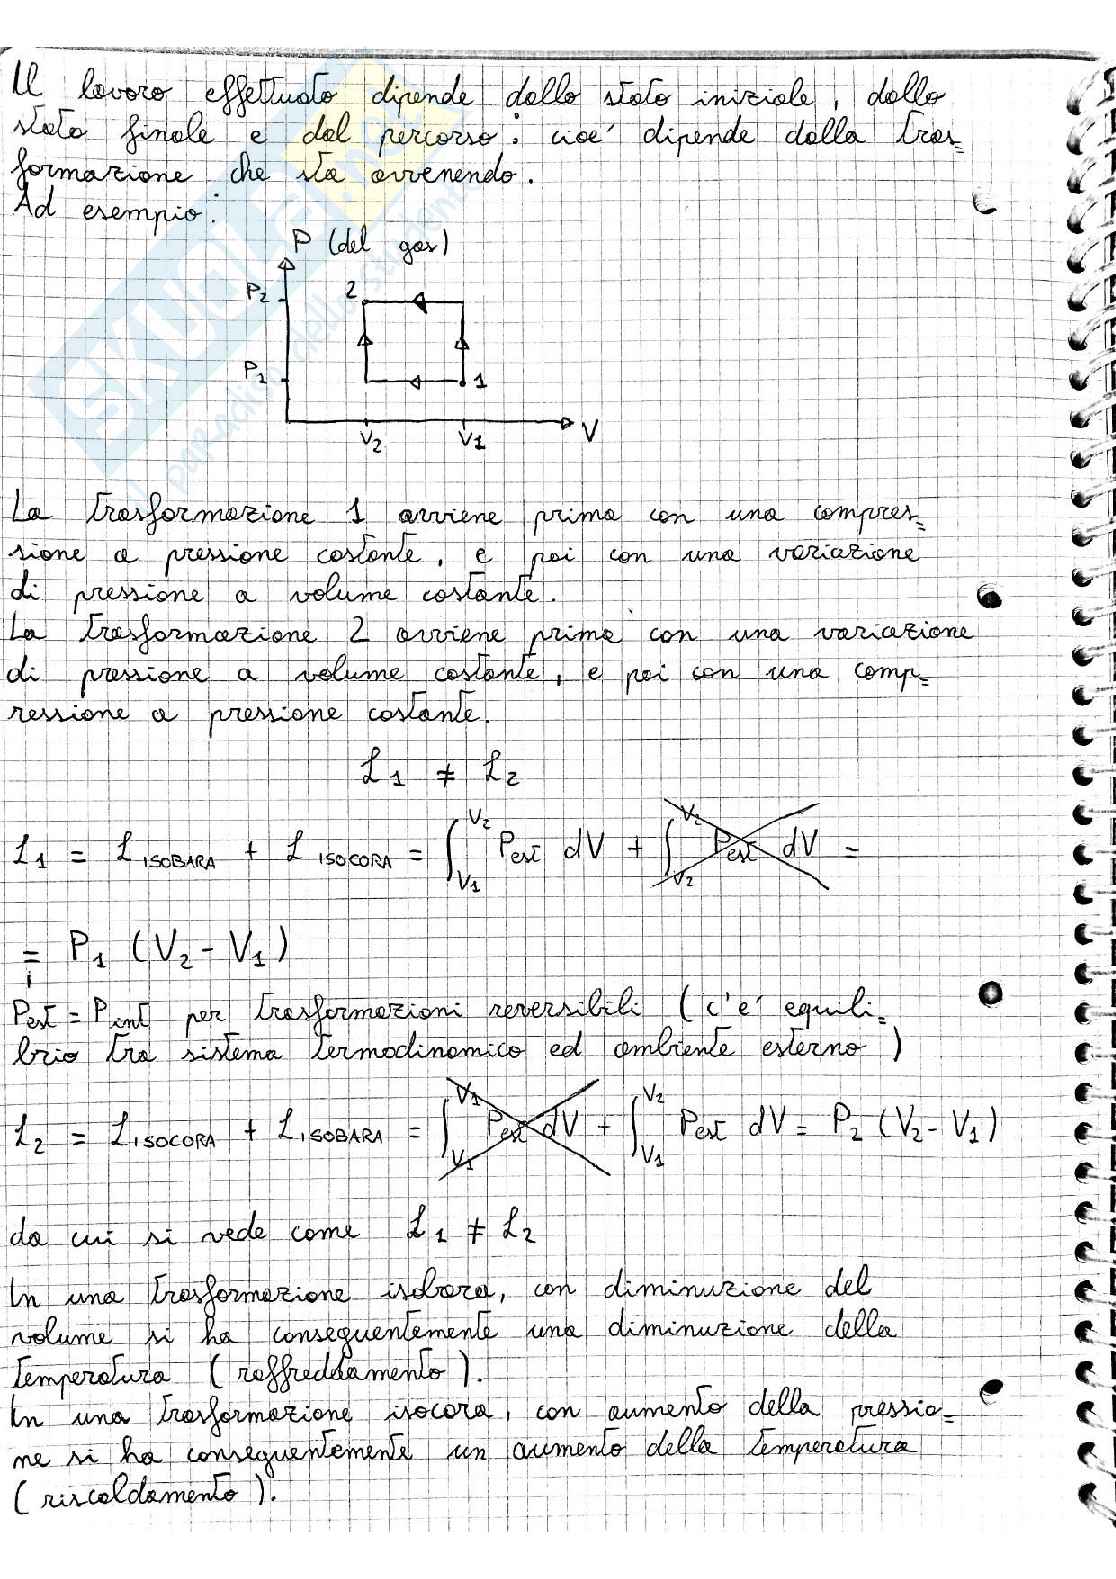 Il lavoro effettuato dipende dallo stato iniziale, dallo
stato finale e dal percorso: cioe' dipende dalla tras=
formazione che sta avvenendo.
Ad esempio:
P (del gas)
P2 2
P2 1
V2 V1 V
La trasformazione 1 avviene prima con una compres=
sione a pressione costante, e poi con una variazione
di pressione a volume costante.
La trasformazione 2 avviene prima con una variazione
di pressione a volume costante, e poi con una comp=
ressione a pressione costante.
L1 ≠ L2
L1 = L ISOBARA + L ISOCORA = ∫V1V2 Pest dV + ∫V2V2 Pest dV =
= P1 (V2 - V1)
Pest = Pint per trasformazioni reversibili (c'e' equili=
brio tra sistema termodinamico ed ambiente esterno)
L2 = L ISOCORA + L ISOBARA = ∫V1V1 Pest dV + ∫V1V2 Pest dV = P2 (V2 - V1)
da cui si vede come L1 ≠ L2
In una trasformazione isobara, con diminuzione del
volume si ha conseguentemente una diminuzione della
temperatura (raffreddamento).
In una trasformazione isocora, con aumento della pressio=
ne si ha conseguentemente un aumento della temperatura
(riscaldamento).